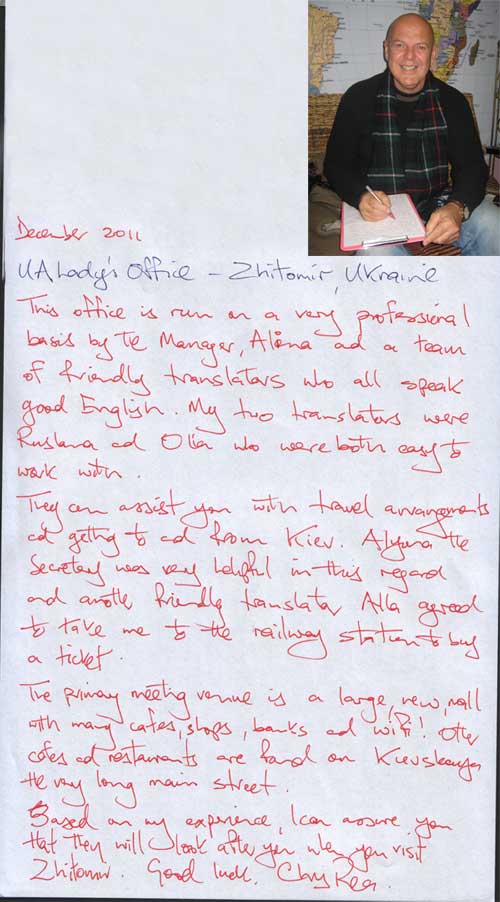 December 2011
UALady's Office - Zhitomir, Ukraine
This office is run on a very professional
basis by the Manager, Alona ad a team
of friendly translators who all speak
good English. My two translators were
Ruslana ad Olia who were both easy to
work with.
They can assist you with travel arrangements
ad getting to ad from Kiev. Alyona the
Secretary was very helpful in this regard
and another friendly translator Alla agreed
to take me to the railway station to buy
a ticket.
The primary meeting venue is a large, new, mall
with many cafes, shops, banks ad wifi! Other
cafes ad restaurants are found on
the very long main street.
Based on my experience, I can assure you
that they will look after you when you visit
Zhitomir. Good luck.